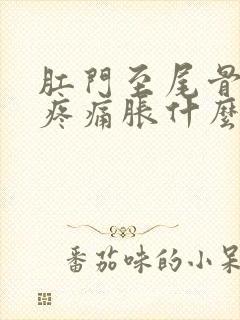 肛門至尾骨
疼痛脹什麼
番茄味的小呆